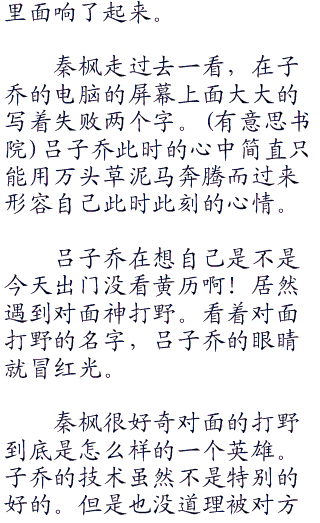 里面响了起来。
秦枫走过去一看，在子
乔的电脑的屏幕上面大大的
写着失败两个字。(有意思书
院)吕子乔此时的心中简直只
能用万头草泥马奔腾而过来
形容自己此时此刻的心情。
吕子乔在想自己是不是
今天出门没看黄历啊！居然
遇到对面神打野。看着对面
打野的名字，吕子乔的眼睛
就冒红光。
秦枫很好奇对面的打野
到底是怎么样的一个英雄。
子乔的技术虽然不是特别的
好的。但是也没道理被对方